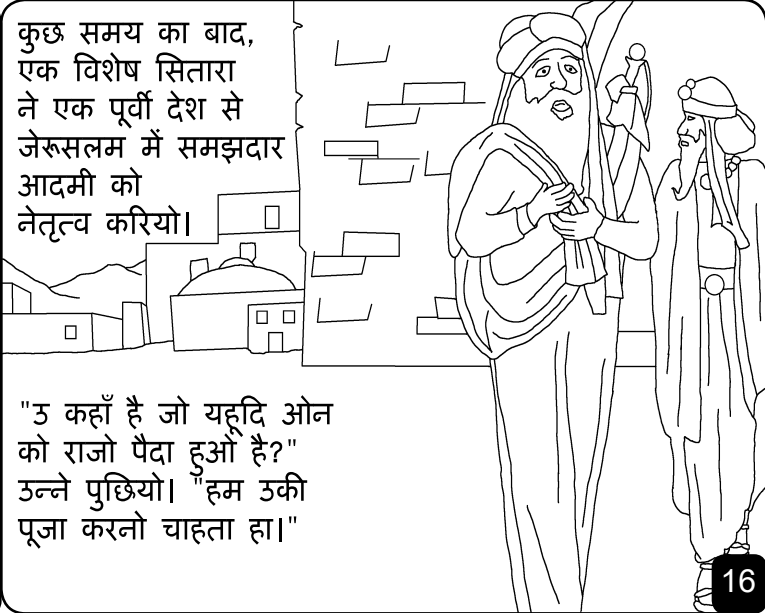 कुछ समय का बाद,
एक विशेष सितारा
ने एक पूर्वी देश से
जेरूसलम में समझदार
आदमी को
नेतृत्व करियो।
"उ कहाँ है जो यहूदि ओन
को राजो पैदा हुओ है?"
उन्ने पुछियो। "हम उकी
पूजा करनो चाहता हा।"
16